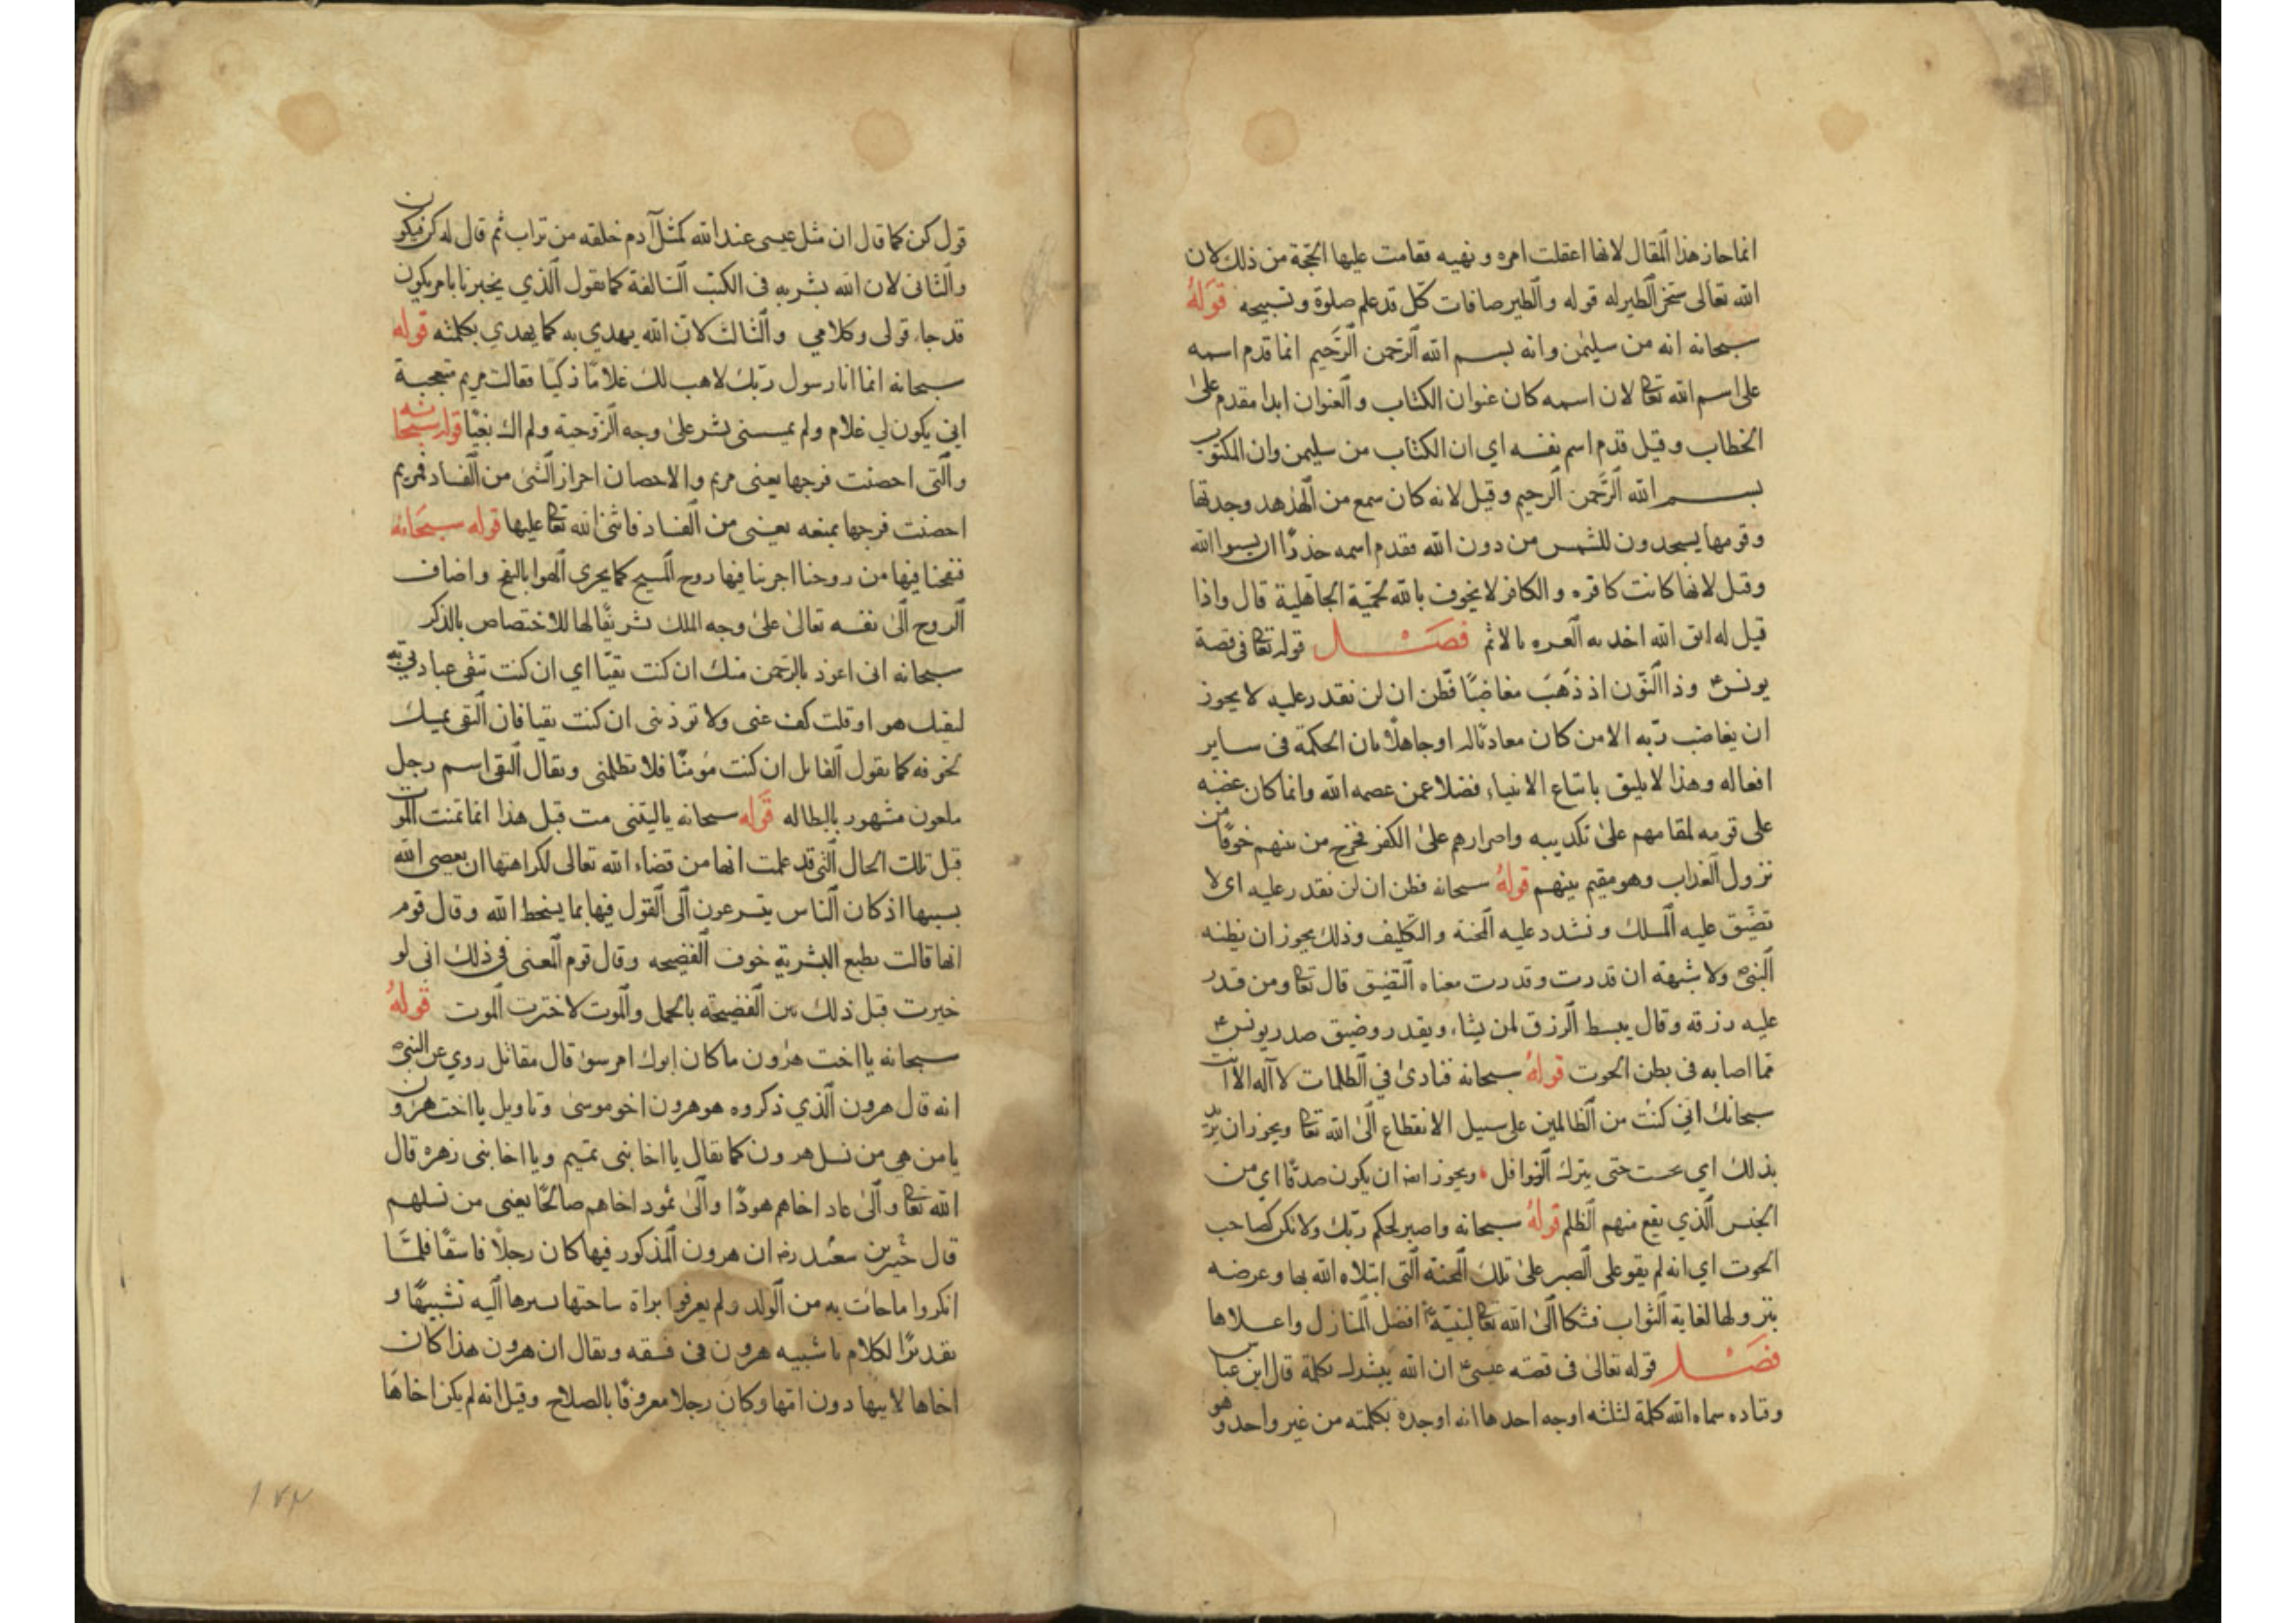 انما جاز هذا المقال لانها اعقلت امره و نهيه فقامت عليها الحجة من ذلك لان
الله تعالى سخر الطير له قوله والطير صافات كل قد علم صلوة وتسبيحه قوله
سبحانه انه من سليمن وانه بسم الله الرحمن الرحيم انما قدم اسمه
على اسم الله تعا لان اسمه كان عنوان الكتاب والعنوان ابدا مقدم على
الخطاب وقيل قدم اسم نفسه اي ان الكتاب من سليمن وان المكتوب
بسم الله الرحمن الرحيم وقيل لانه كان سمع من الهدهد وجدتها
وقومها يسجدون للشمس من دون الله فقدم اسمه حذرا ان يسبوا الله
وقيل لانها كانت كافره والكافر لا يخوف بالله لحمية الجاهلية قال واذا
قيل له اتق الله اخدته العزه بالاثم فصل قوله تعا فى قصة
يونس ع وذا النون اذ ذهب مغاضبا فظن ان لن نقدر عليه لا يجوز
ان يغاضب ربه الا من كان معاديا له او جاهلا بان الحكمة فى ساير
افعاله وهذا لا يليق باتباع الانبياء فضلا عمن عصمه الله وانما كان غضبه
على قومه لمقامهم على تكذيبه واصرارهم على الكفر فخرج من بينهم خوفا من
نزول العذاب وهو مقيم بينهم قوله سبحانه فظن ان لن نقدر عليه اى لا
تضيق عليه المسلك و نشدد عليه المحنة والتكليف وذلك يجوز ان يظنه
النبى ص ولا شبهة ان قدرت وقدرت معناه التضيق قال تعا ومن قدر
عليه رزقه وقال يبسط الرزق لمن يشاء ويقدر وضيق صدر يونس ع
مما اصابه فى بطن الحوت قوله سبحانه فنادى في الظلمات لا اله الا انت
سبحانك اني كنت من الظالمين على سبيل الانقطاع الى الله تعا ويجوز ان يريد
بذلك اي حتى بترك النوافل ويجوز ان يكون صدقا اي من
الجنس الذي يقع منهم الظلم قوله سبحانه واصبر لحكم ربك ولا تكن كصاحب
الحوت اي انه لم يقو على الصبر على تلك المحنة التى ابتلاه الله بها وعرضه
بنزولها لغاية الثواب فشكا الى الله تعا افضل المنازل واعلاها
فصل قوله تعالى فى قصه عيسى ع ان الله يبشرك بكلمة قال ابن عباس
وقتاده سماه الله كلمة لثلثه اوجه احدها انه اوجده بكلمته من غير واحد وهو
قول كن كما قال ان مثل عيسى عند الله كمثل آدم خلقه من تراب ثم قال له كن فيكون
والثانى لان الله بشر به فى الكتب السالفة كما يقول الذي يخبرنا بامر يكون
قد جاء قولى وكلامي والثالث لان الله يهدي به كما يهدي بكلمته قوله
سبحانه انما انا رسول ربك لاهب لك غلاما ذكيا فقالت مريم متعجبة
اني يكون لي غلام ولم يمسسنى بشر على وجه الزوجية ولم اك بغيا قوله سبحانه
والتى احصنت فرجها يعنى مريم والاحصان احراز الشئ من الفساد فمريم
احصنت فرجها بمنعه يعنى من الفساد فاثنى الله تعا عليها قوله سبحانه
فنفخنا فيها من روحنا اجرينا فيها روح المسيح كما يجرى الهوا بالنفخ واضاف
الروح الى نفسه تعالى على وجه الملك تشريفا لها للاختصاص بالذكر
سبحانه انى اعوذ بالرحمن منك ان كنت تقيا اي ان كنت تتقى عبادتى به
هو او قلت كف عنى ولا توذنى ان كنت تقيا فان التقى يميك
كما يقول القايل ان كنت مؤمنا فلا تظلمنى ويقال التقى اسم رجل
ملعون مشهور بالبطاله قوله سبحانه يا ليتنى مت قبل هذا انما تمنت الموت
قبل تلك الحال التى قد علمت انها من قضاء الله تعالى لكراهتها ان يعصى الله
بسببها اذ كان الناس يتسرعون الى القول فيها بما يسخط الله وقال قوم
انها قالت بطبع البشرية خوف الفضيحه وقال قوم المعنى فى ذلك انى لو
خيرت قبل ذلك بين الفضيحه بالحمل والموت لاخترت الموت قوله
سبحانه يا اخت هرون ما كان ابوك امر سوء قال مقاتل روي عن النبى ص
انه قال هرون الذي ذكروه هو هرون اخو موسى وتاويل يا اخت هرون
يا من هي من نسل هرون كما يقال يا اخا بنى تميم ويا اخا بنى زهره قال
الله تعا والى عاد اخاهم هودا والى ثمود اخاهم صالحا يعنى من نسلهم
قال بن ان هرون المذكور فيها كان رجلا فاسقا فلما
انكروا ما جاءت به من الولد ولم يعرفوا براة ساحتها اليه تشبيها و
تقديرا لكلام يا شبيه هرون فى فسقه ويقال ان هرون هذا كان
اخاها لابيها دون امها وكان رجلا معروفا بالصلاح وقيل انه لم يكن اخاها